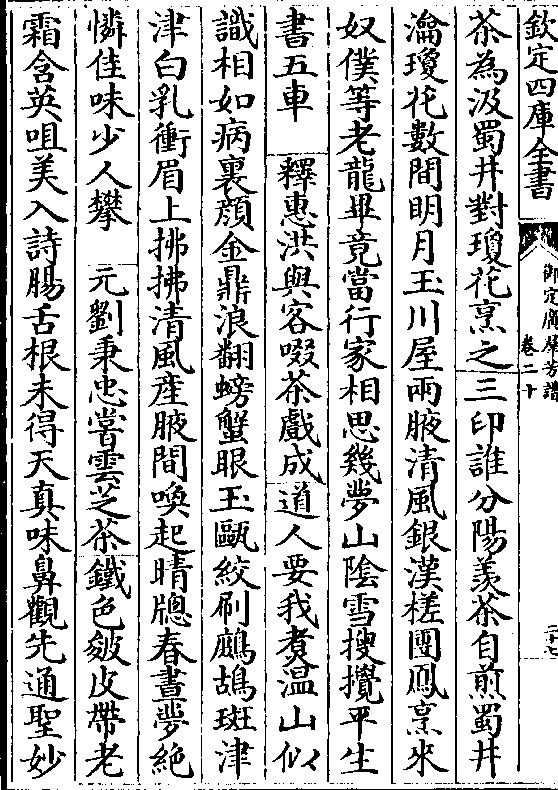 欽定四庫全書
御定廣羣芳譜
卷二十
二十七
茶為汲蜀井對瓊花烹之 三印誰分陽羨茶自煎蜀井
瀹瓊花數間明月玉川屋兩腋清風銀漢槎團鳳烹來
奴僕等老龍畢竟當行家相思幾夢山陰雪搜攪平生
書五車 釋惠洪與客啜茶戲成 道人要我煮温山似
識相如病裏顔金鼎浪翻螃蟹眼玉甌絞刷鷓鴣斑津
津白乳衝眉上拂拂清風産腋間喚起晴牕春晝夢絶
憐佳味少人攀 元劉秉忠嘗雲芝茶 鐵色皴皮帶老
霜含英咀美入詩腸舌根未得天真味鼻觀先通聖妙